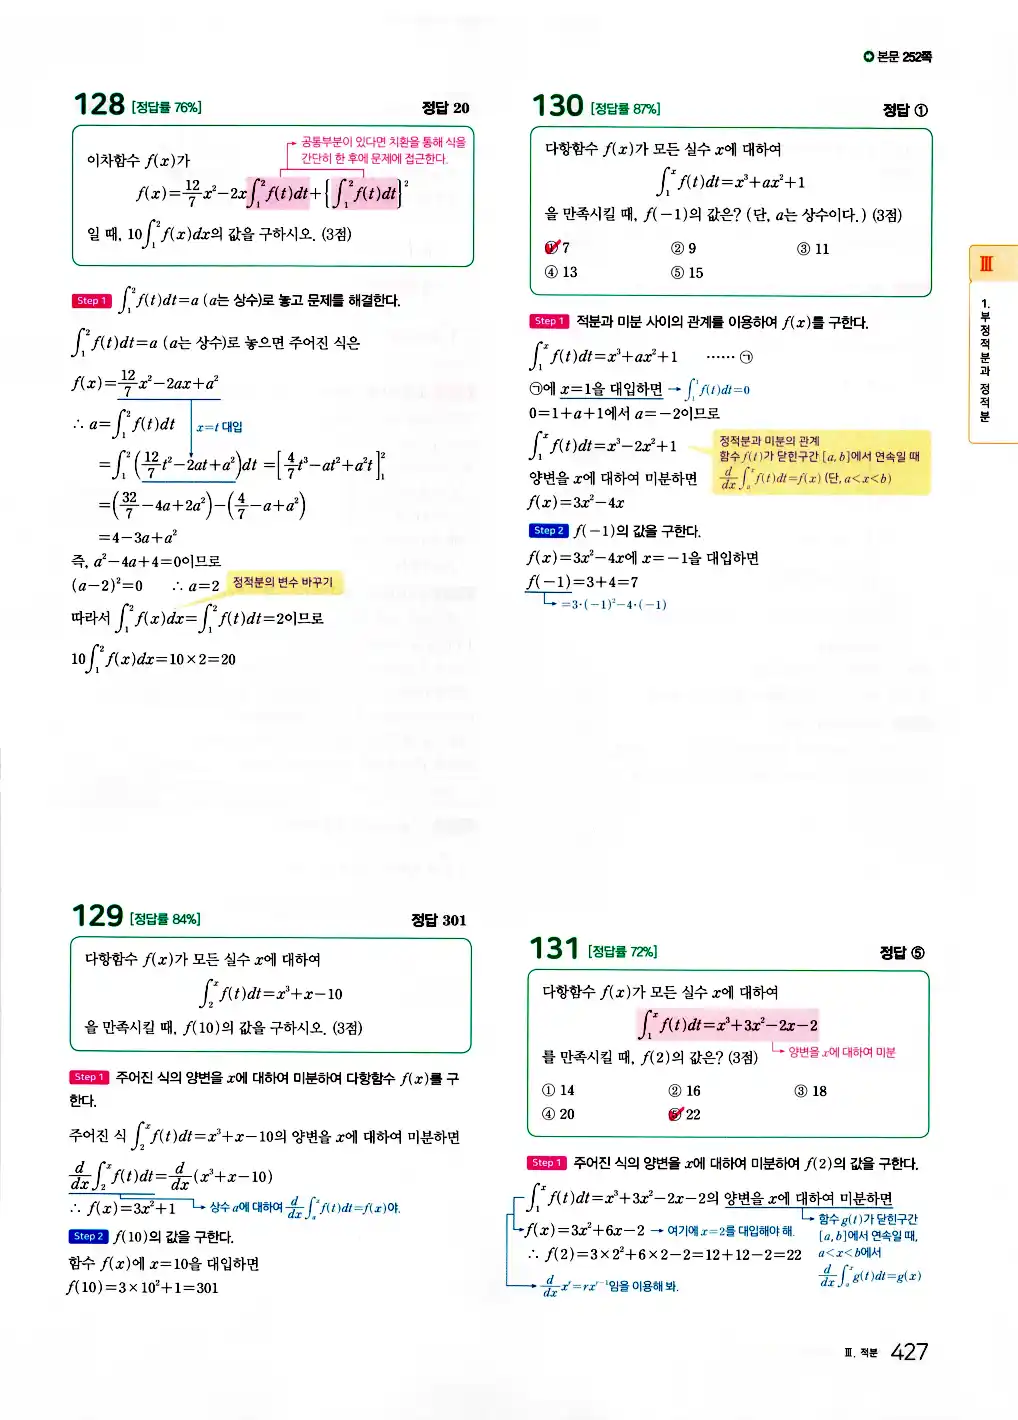 본문 252쪽
128 [정답률 76%] 정답 20
공통부분이 있다면 치환을 통해 식을
간단히 한 후에 문제에 접근한다.
이차함수 f(x)가
f(x)=12/7x²−2x∫₁²f(t)dt+{∫₁²f(t)dt}²
일 때, 10∫₁²f(x)dx의 값을 구하시오. (3점)
Step 1 ∫₁²f(t)dt=a (a는 상수)로 놓고 문제를 해결한다.
∫₁²f(t)dt=a (a는 상수)로 놓으면 주어진 식은
f(x)=12/7x²−2ax+a²
∴ a=∫₁²f(t)dt x=t 대입
=∫₁²(12/7t²−2at+a²)dt=[4/7t³−at²+a²t]₁²
=(32/7−4a+2a²)−(4/7−a+a²)
=4−3a+a²
즉, a²−4a+4=0이므로
(a−2)²=0 ∴ a=2 정적분의 변수 바꾸기
따라서 ∫₁²f(x)dx=∫₁²f(t)dt=2이므로
10∫₁²f(x)dx=10×2=20
129 [정답률 84%] 정답 301
다항함수 f(x)가 모든 실수 x에 대하여
∫₂ˣf(t)dt=x³+x−10
을 만족시킬 때, f(10)의 값을 구하시오. (3점)
Step 1 주어진 식의 양변을 x에 대하여 미분하여 다항함수 f(x)를 구
한다.
주어진 식 ∫₂ˣf(t)dt=x³+x−10의 양변을 x에 대하여 미분하면
d/dx∫₂ˣf(t)dt=d/dx(x³+x−10)
∴ f(x)=3x²+1 상수 a에 대하여 d/dx∫ₐˣf(t)dt=f(x)야.
Step 2 f(10)의 값을 구한다.
함수 f(x)에 x=10을 대입하면
f(10)=3×10²+1=301
130 [정답률 87%] 정답 ①
다항함수 f(x)가 모든 실수 x에 대하여
∫₁ˣf(t)dt=x³+ax²+1
을 만족시킬 때, f(−1)의 값은? (단, a는 상수이다.) (3점)
① 7 ② 9 ③ 11
④ 13 ⑤ 15
Step 1 적분과 미분 사이의 관계를 이용하여 f(x)를 구한다.
∫₁ˣf(t)dt=x³+ax²+1 ······ ㉠
㉠에 x=1을 대입하면 → ∫₁¹f(t)dt=0
0=1+a+1에서 a=−2이므로
∫₁ˣf(t)dt=x³−2x²+1
양변을 x에 대하여 미분하면
f(x)=3x²−4x
정적분과 미분의 관계
함수 f(t)가 닫힌구간 [a, b]에서 연속일 때
d/dx∫ₐˣf(t)dt=f(x) (단, a<x<b)
Step 2 f(−1)의 값을 구한다.
f(x)=3x²−4x에 x=−1을 대입하면
f(−1)=3+4=7
=3·(−1)²−4·(−1)
131 [정답률 72%] 정답 ⑤
다항함수 f(x)가 모든 실수 x에 대하여
∫₁ˣf(t)dt=x³+3x²−2x−2
를 만족시킬 때, f(2)의 값은? (3점) 양변을 x에 대하여 미분
① 14 ② 16 ③ 18
④ 20 ⑤ 22
Step 1 주어진 식의 양변을 x에 대하여 미분하여 f(2)의 값을 구한다.
∫₁ˣf(t)dt=x³+3x²−2x−2의 양변을 x에 대하여 미분하면
f(x)=3x²+6x−2 → 여기에 x=2를 대입해야 해.
∴ f(2)=3×2²+6×2−2=12+12−2=22
d/dx xʳ=rxʳ⁻¹임을 이용해 봐.
함수 g(t)가 닫힌구간
[a, b]에서 연속일 때,
a<x<b에서
d/dx∫ₐˣg(t)dt=g(x)
Ⅲ
1. 부정적분과 정적분
Ⅲ. 적분 427